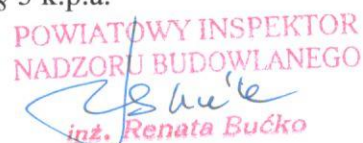 § 3 k.p.a.
POWIATOWY INSPEKTOR
NADZORU BUDOWLANEGO
inż. Renata Bućko